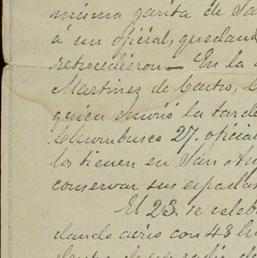 misma garita de Sa
á un oficial, quedand
retrocedieron — En la
Martinez de Castro,
quien murió la tarde
Churubusco 27. oficial
los tienen en San An
conservar sus espadas
El 23. se celeb
dando aviso con 48 h